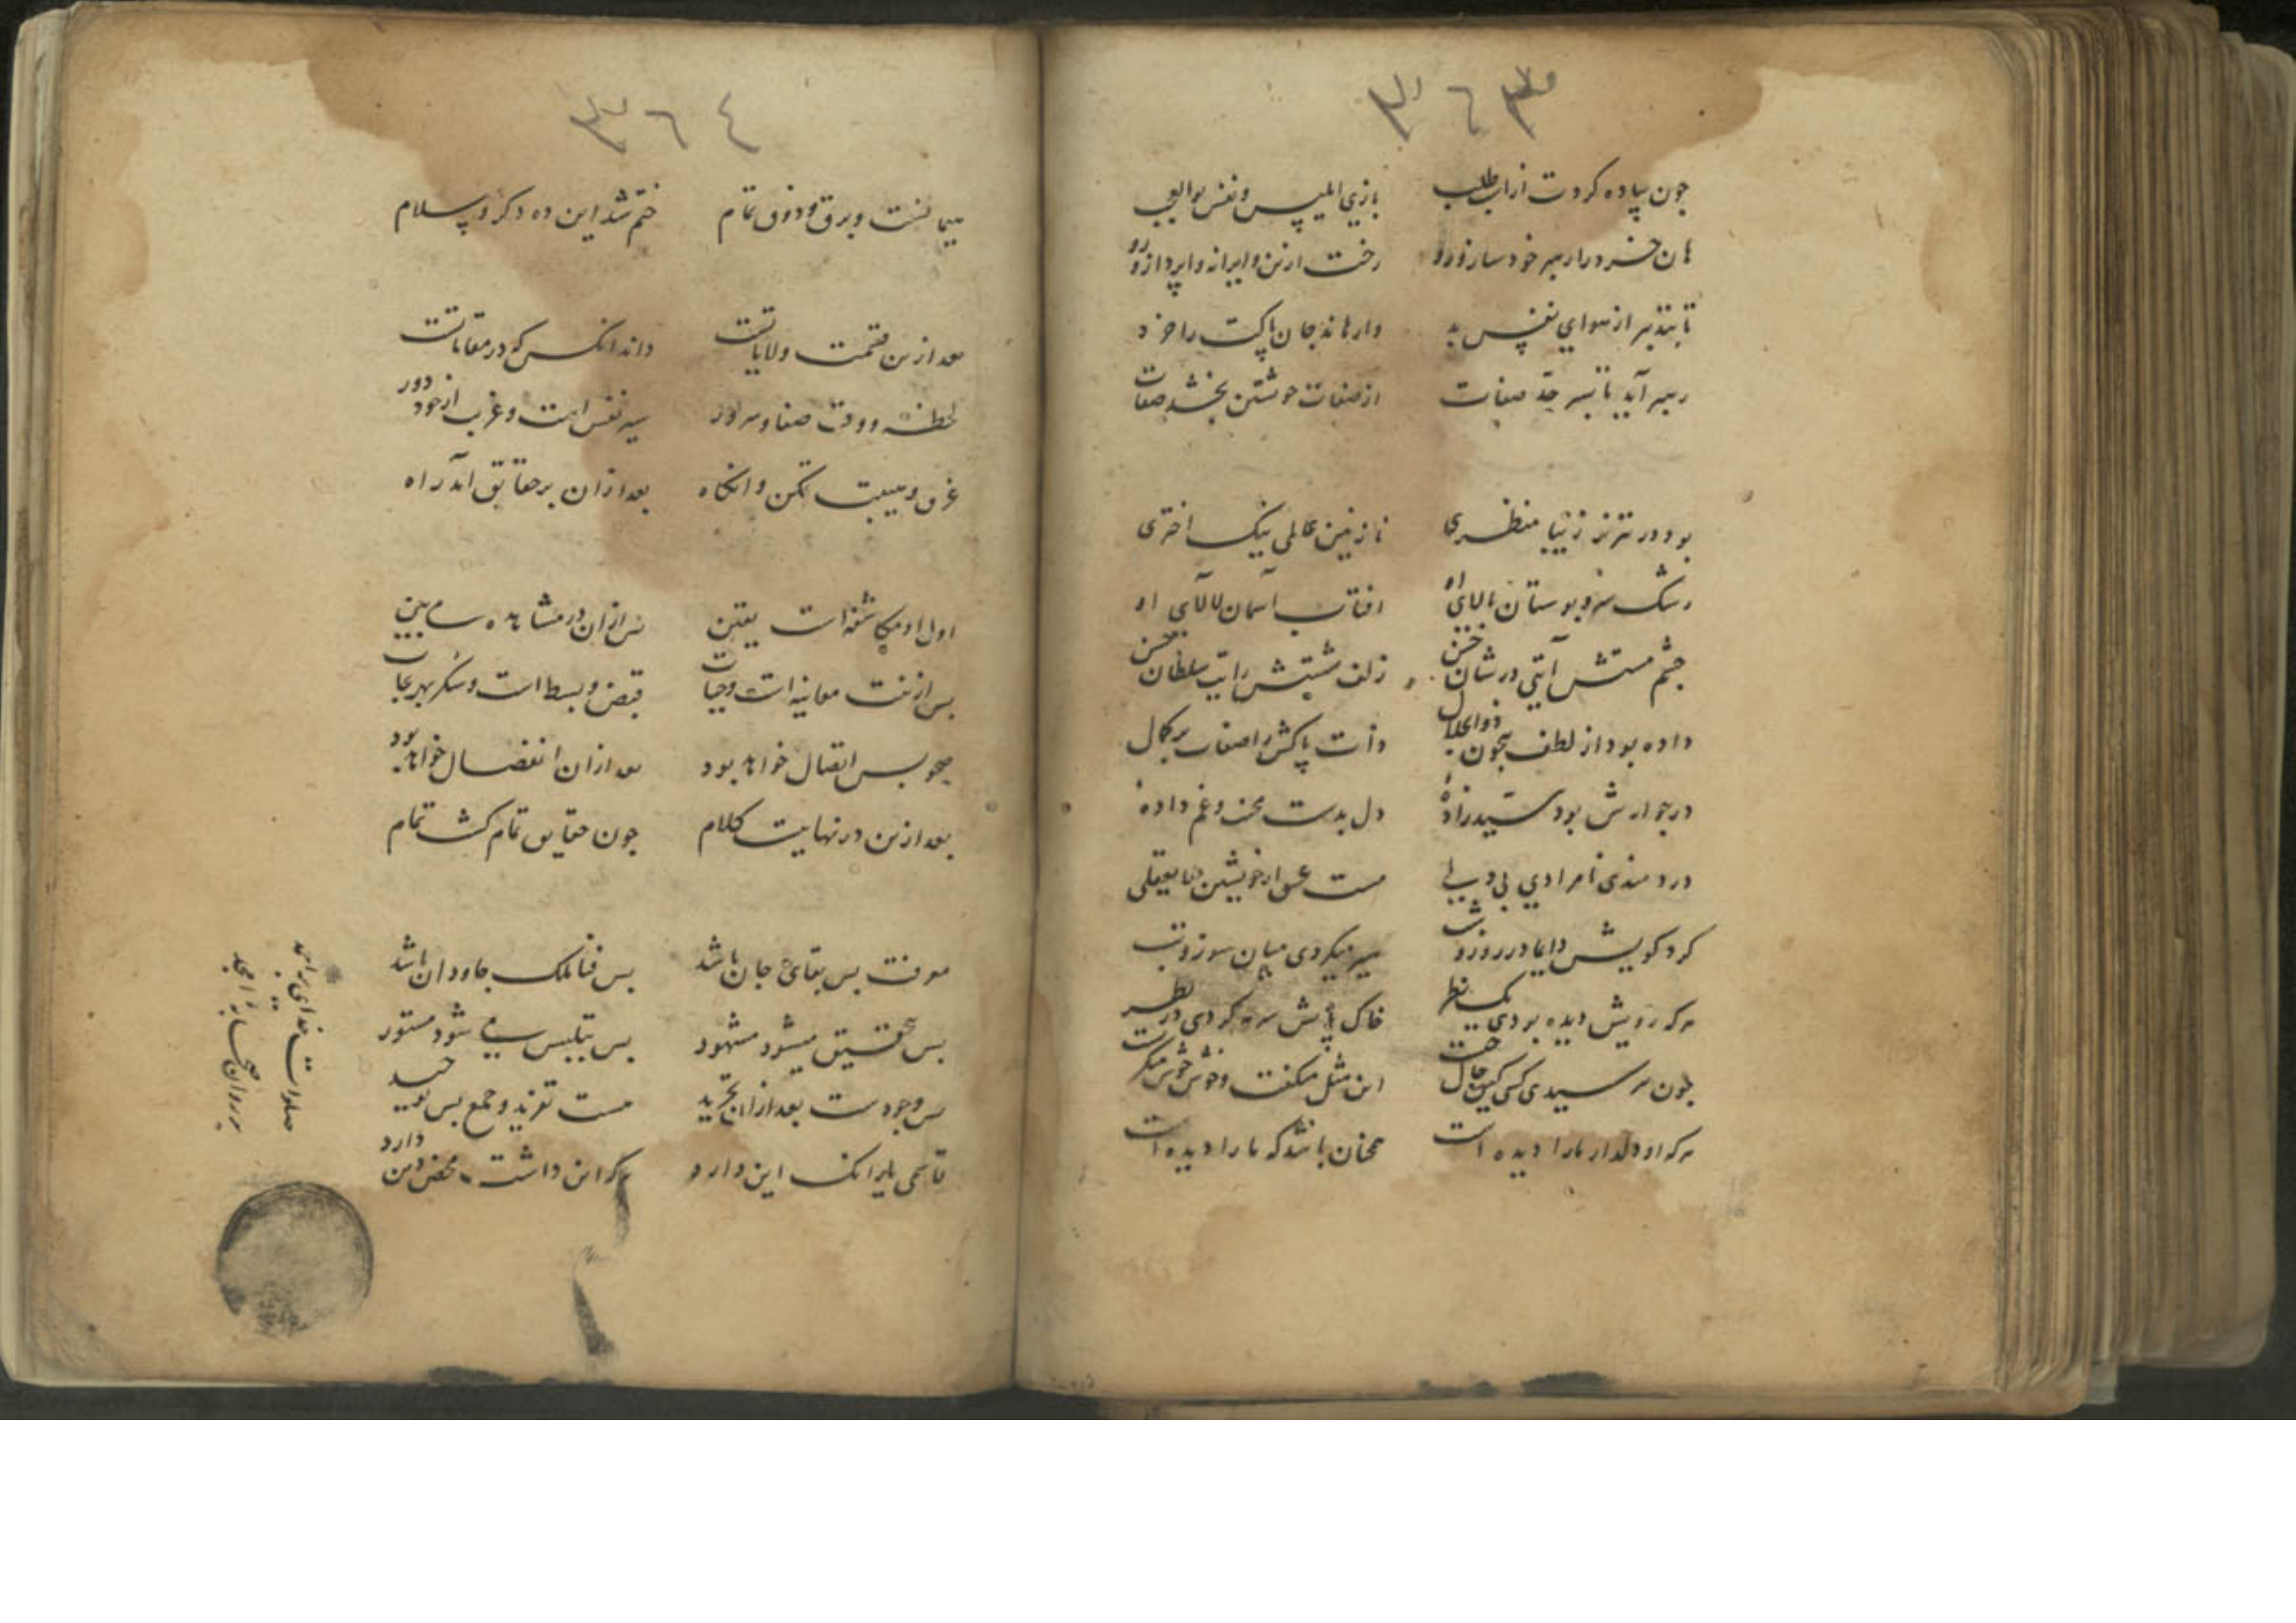 ٣٦٣
چون پیاده کردت از اسب طلب بازی ابلیس و نفس بوالعجب
هان خرد را رهبر خود ساز و رو رخت ازین ویرانه واپرداز و رو
تا بتدبیر از هوای نفس بد وارهاند جان پاکت را خرد
رهبر آید تا بسرحد صفات از صفات خویشتن بخشد صفات
بود در تبریز زیبا منظری نازنین عالمی نیک اختری
رشک سرو بوستان بالای او افتاب آسمان لالای او
چشم مستش آیتی در شان حسن زلف شستش رایت سلطان حسن
داده بود از لطف بیچون ذوالجلال ذات پاکش را صفات بر کمال
در جوارش بود سیدزادهٔ دل بدست محنت و غم دادهٔ
دردمندی نامرادی بی دلی مست عشق از خویشتن لایعقلی
کرد کویش دایما در روز و شب سیر میکردی میان سوز و تب
هرکه رویش دیده بردی یک نظر خاک پایش سرمه کردی در نظر
چون بپرسیدی کسی کین حال چیست این مثل میگفت و خوش خوش میگریست
هرکه او دلدار ما را دیده است همچنان باشد که ما را دیده است
٣٦٤
ختم شد این ده دکر و السلام
بعد ازین قسمت ولایاتست داند انکس که در مقاماتست
لحظه و وقت صفا و سرور سیر نفس است و غربت از خود دور
غرق و غیبت تمکن و انکاه بعد ازان بر حقایق آمد راه
اول او مکاشفه است یقین پس ازان در مشاهده می بین
پس ازینت معاینه است و حیات قبض و بسط است و سکر بهر نجات
صحو پس اتصال خواهد بود بعد ازان انفصال خواهد بود
بعد ازین در نهایت کلام چون حقایق تمام کشت تمام
معرفت پس بقای جان باشد پس فنا ملک جاودان باشد
پس تحقیق میشود مشهود پس بتلبیس می شود مستور
پس وجودست بعد ازان تجرید هست تفرید و جمع پس توحید
قاسمی یار انک این دارد هرک این داشت محض دین دارد
صلوات خدای
بر روان محمد